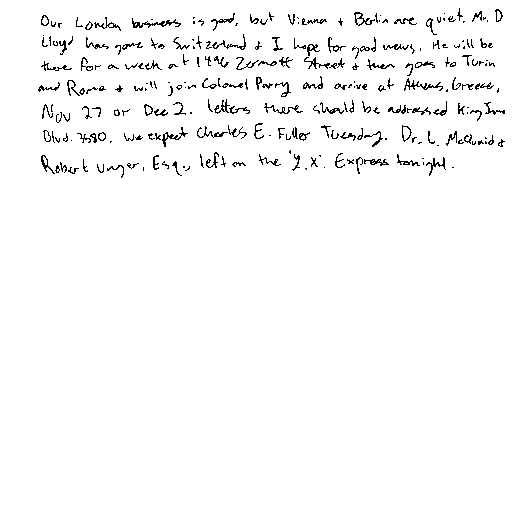 Our London business is good, but Vienna + Berlin are quiet. Mr. D
Lloyd has gone to Switzerland + I hope for good news. He will be
there for a week at 1496 Zermott Street + then goes to Turin
and Rome + will join Colonel Parry and arrive at Athens, Greece,
Nov 27 or Dec 2. Letters there should be addressed King
Blvd. 3580. We expect Charles E. Fuller Tuesday. Dr. L. McQuaid +
Robert Unger, Esq., left on the 'Y.X'. Express tonight.